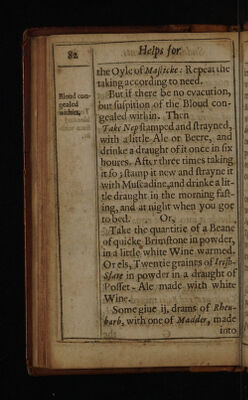 82
Helps for
the Oyle of Masticke: Repeat the
taking according to need.
But if there be no evacution,
but suspition of the Bloud con-
gealed within. Then
Take Nep stamped and strayned,
with a little Ale or Beere, and
drinke a draught of it once in six
houres. After three times taking
it so; stamp it new and strayne it
with Muscadine, and drinke a lit-
tle draught in the morning fast-
ing, and at night when you goe
to bed. Or,
Take the quantitie of a Beane
of quicke Brimstone in powder,
in a little white Wine warmed.
Or els, Twentie graines of Irish-
Slate in powder in a draught of
Posset-Ale made with white
Wine.
Some giue ij, drams of Rheu-
barb, with one of Madder, made
into
Bloud con-
gealed
within.